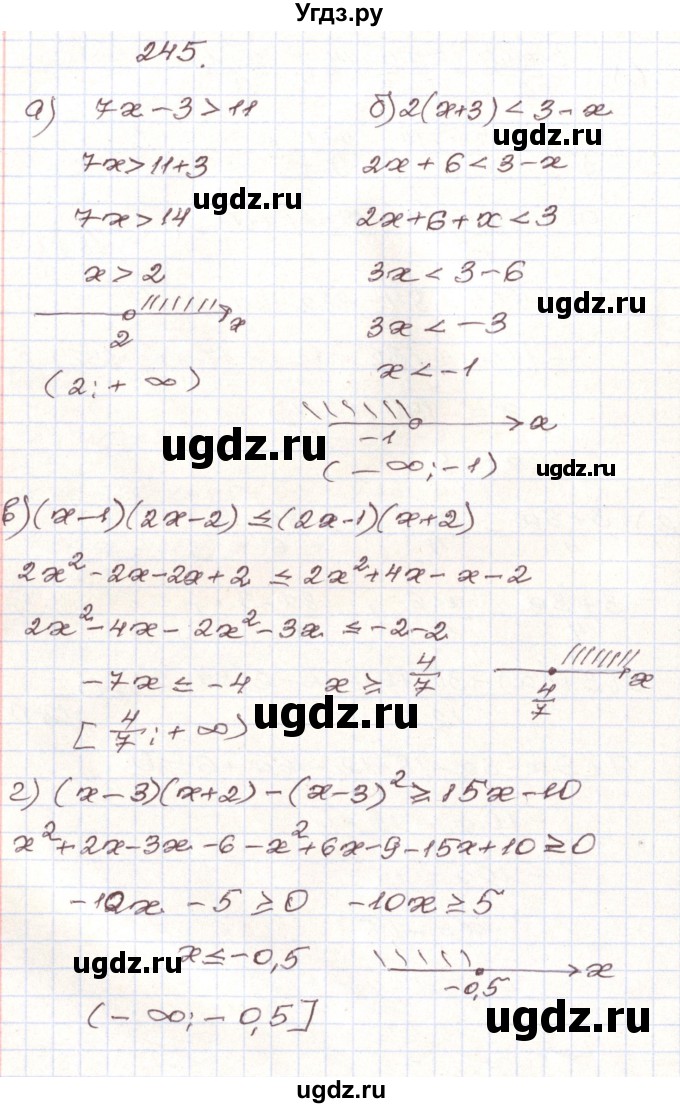 Угдз.ру
245.
а) 7x - 3 > 11
7x > 11 + 3
7x > 14
x > 2
2 x
(2; + ∞)
б) 2(x+3) < 3 - x
2x + 6 < 3 - x
2x + 6 + x < 3
3x < 3 - 6
3x < -3
x < -1
-1 x
(- ∞; -1)
в) (x-1)(2x-2) ≤ (2x-1)(x+2)
2x² - 2x - 2x + 2 ≤ 2x² + 4x - x - 2
2x² - 4x - 2x² - 3x ≤ -2 - 2
-7x ≤ -4 x ≥ 4/7
4/7 x
[4/7; + ∞)
г) (x-3)(x+2) - (x-3)² ≥ 15x - 10
x² + 2x - 3x - 6 - x² + 6x - 9 - 15x + 10 ≥ 0
-10x - 5 ≥ 0 -10x ≥ 5
x ≤ -0,5
-0,5 x
(- ∞; - 0,5]
ugdz.ru
ugdz.ru
ugdz.ru
ugdz.ru
ugdz.ru
ugdz.ru
ugdz.ru
ugdz.ru
ugdz.ru